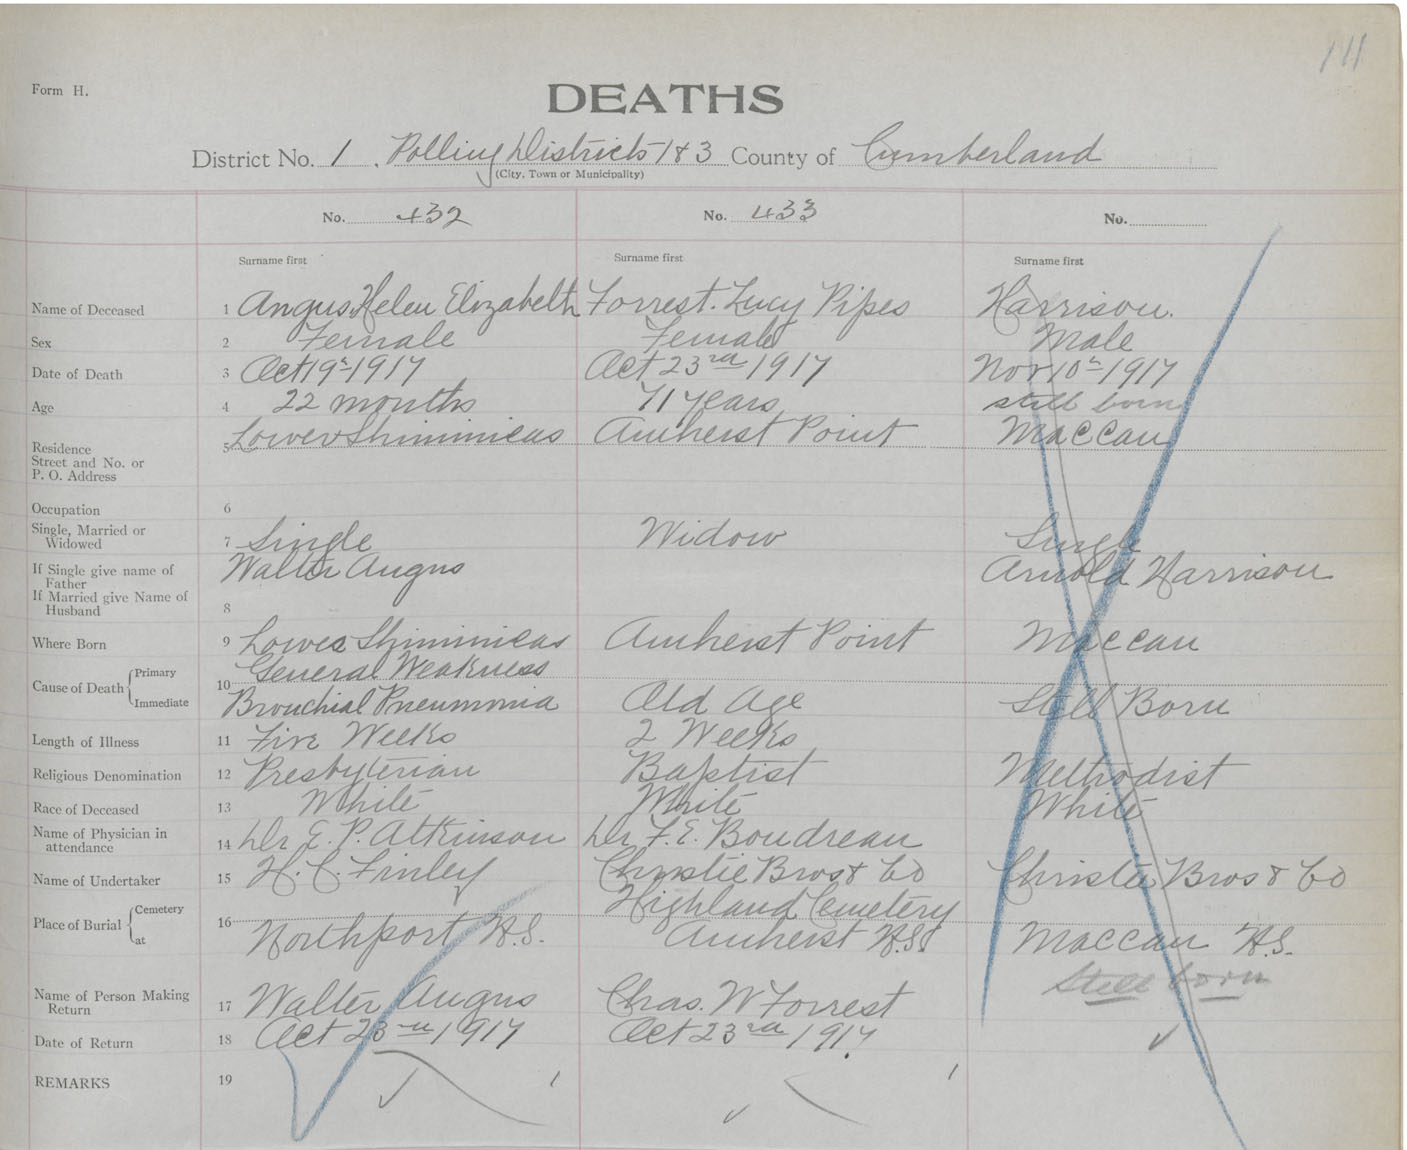 111
Form H.
DEATHS
District No. 1 . Polling Districts 1 & 3 County of Cumberland
(City, Town or Municipality)
No. 432 No. 433 No.
Surname first Surname first Surname first
Name of Deceased 1 Angus, Helen Elizabeth Forrest. Lucy Pipes Harrison.
Sex 2 Female Female Male
Date of Death 3 Oct 19th 1917 Oct 23rd 1917 Nov 10th 1917
Age 4 22 months 71 years still born
Residence Street and No. or P. O. Address 5 Lower Shiminicas Amherst Point Maccan
Occupation 6
Single, Married or Widowed 7 Single Widow Single
If Single give name of Father Walter Angus Arnold Harrison
If Married give Name of Husband 8
Where Born 9 Lower Shiminicas Amherst Point Maccan
Cause of Death Primary 10 General Weakness
Immediate Bronchial Pneumonia Old Age Still Born
Length of Illness 11 Five Weeks 2 Weeks
Religious Denomination 12 Presbyterian Baptist Methodist
Race of Deceased 13 White White White
Name of Physician in attendance 14 Dr E. P. Atkinson Dr F. E. Boudreau
Name of Undertaker 15 H. C. Finley Christie Bros & Co Christie Bros & Co
Place of Burial Cemetery 16 Highland Cemetery
at Northport N.S. Amherst N.S. Maccan N.S.
Still born
Name of Person Making Return 17 Walter Angus Chas. W Forrest
Date of Return 18 Oct 23rd 1917 Oct 23rd 1917
REMARKS 19 1 1